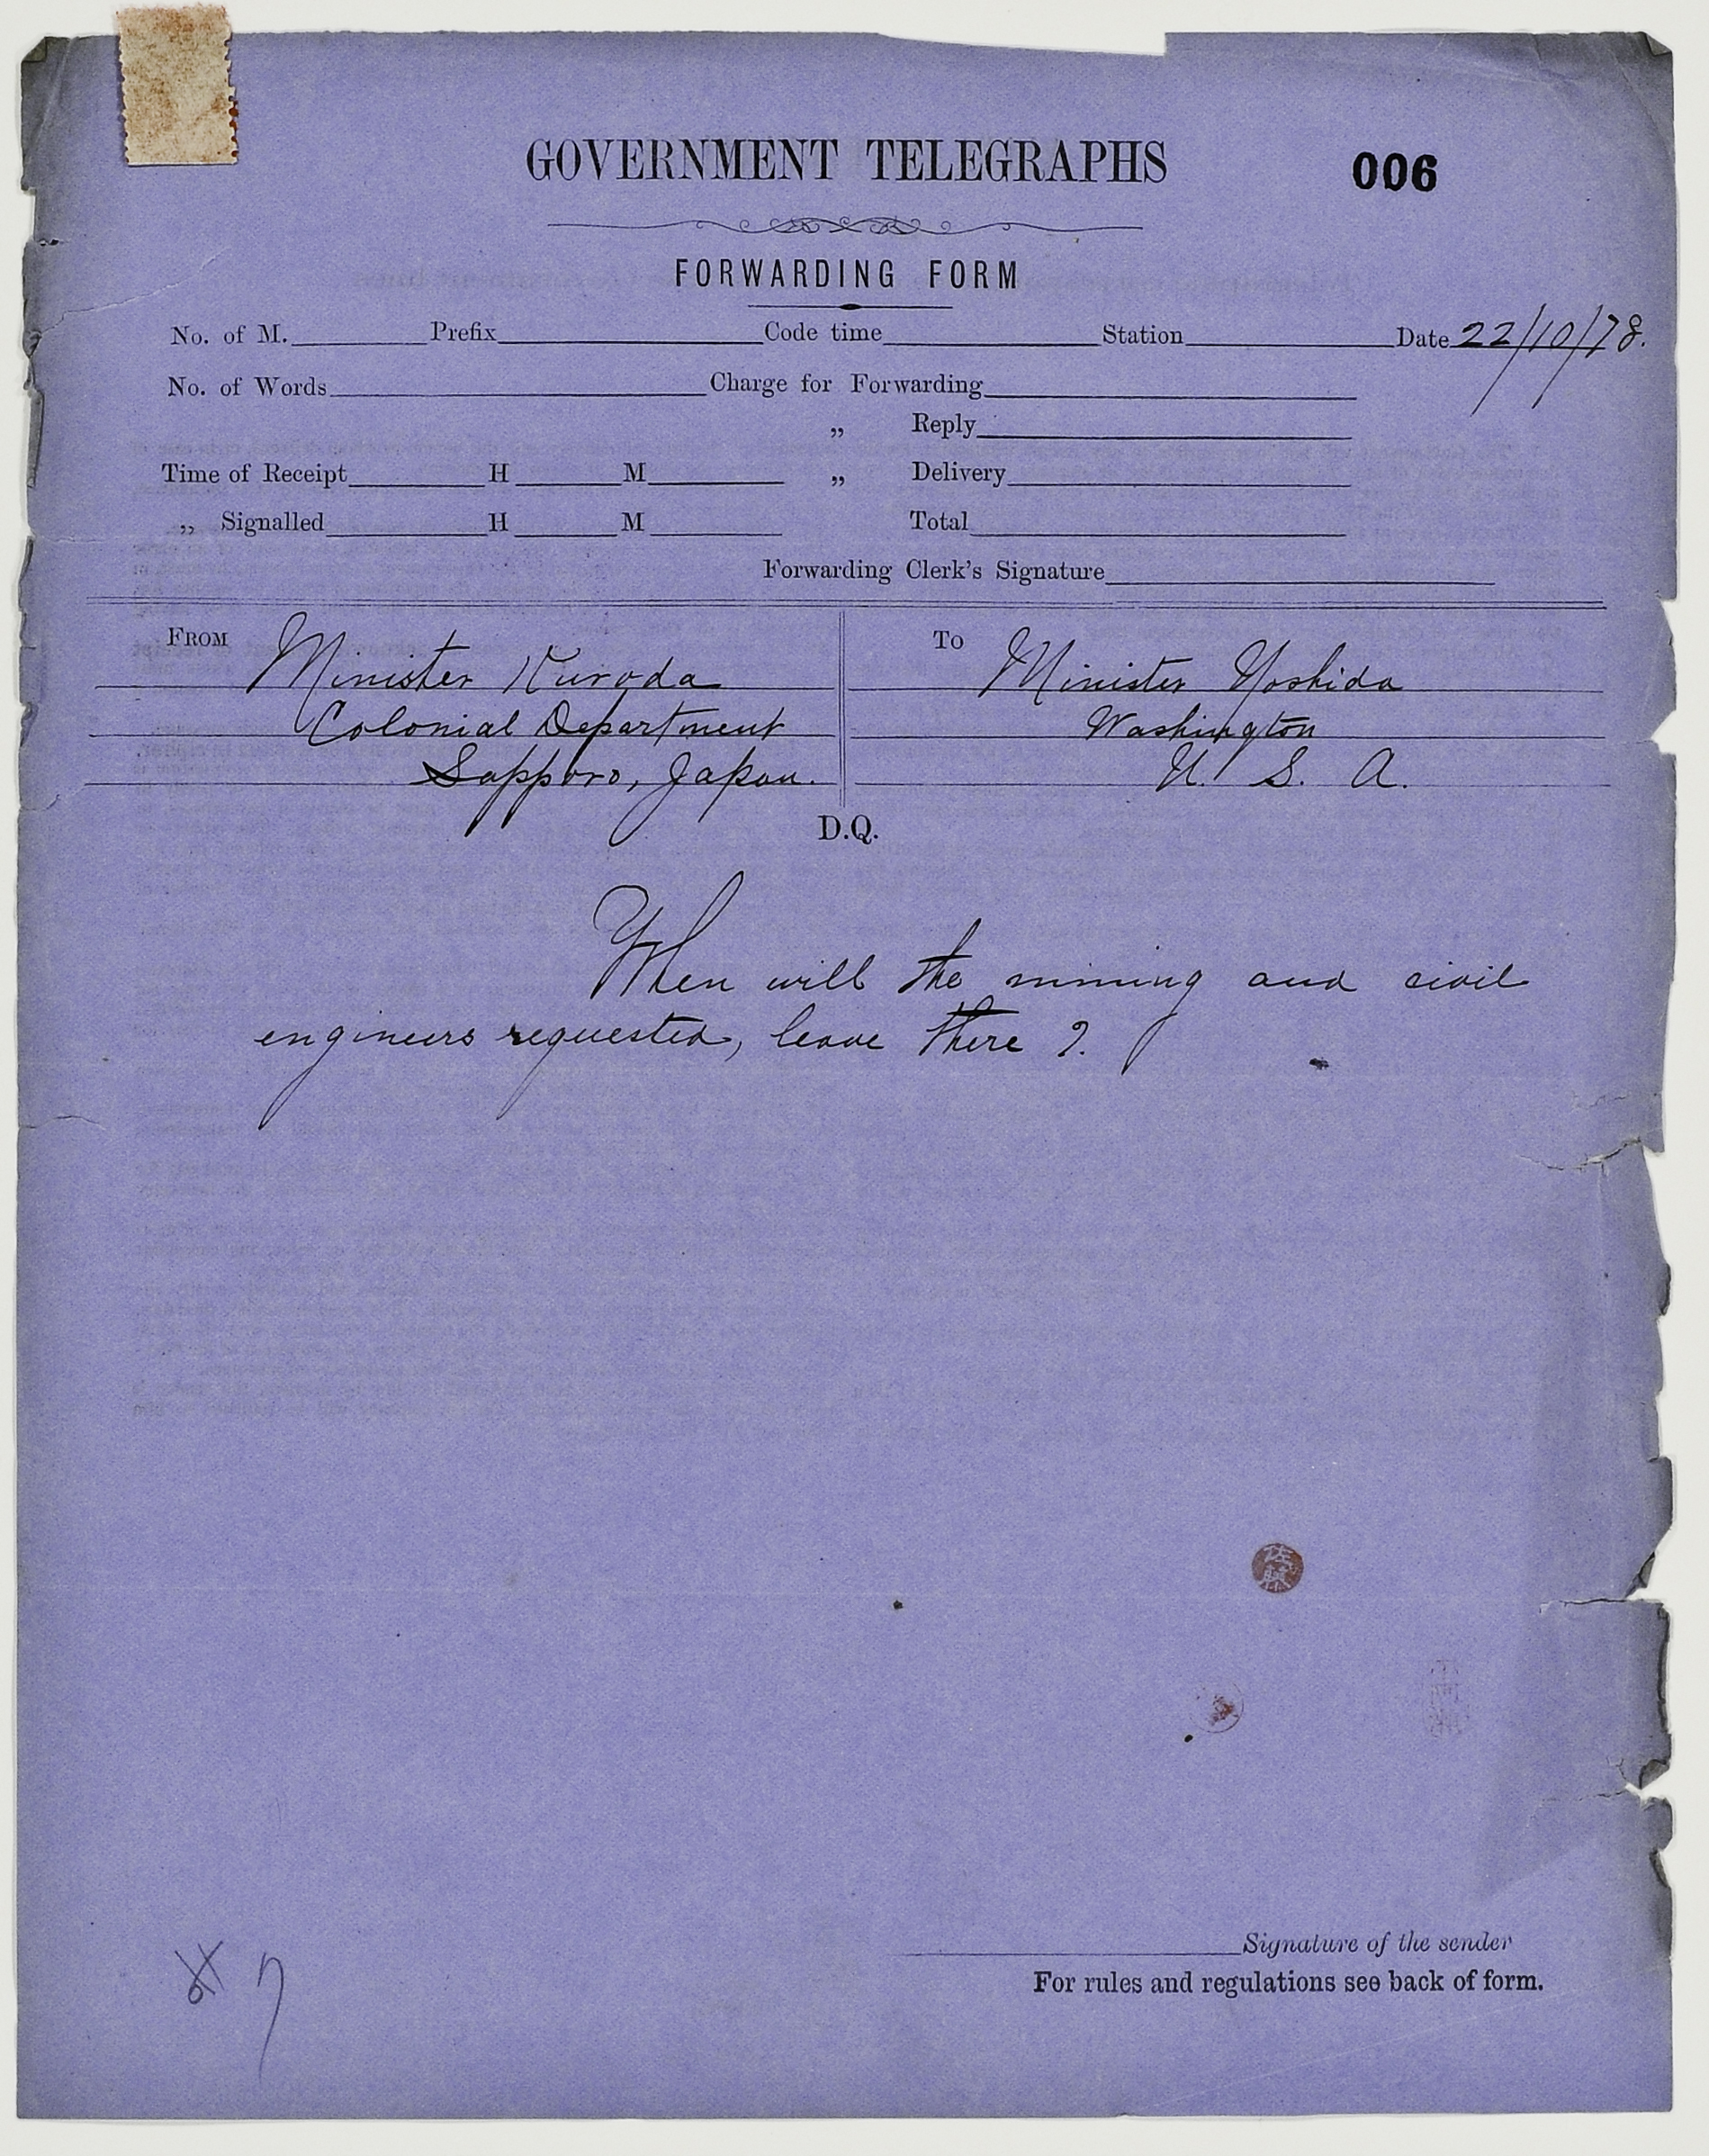 GOVERNMENT TELEGRAPHS
006
FORWARDING FORM
No. of M. Prefix Code time Station Date 22/10/78.
No. of Words Charge for Forwarding
„ Reply
Time of Receipt H M „ Delivery
„ Signalled H M Total
Forwarding Clerk's Signature
FROM Minister Kuroda
Colonial Department
Sapporo, Japan.
TO Minister Yoshida
Washington
U. S. A.
D.Q.
When will the mining and civil
engineers requested, leave there ?
佐藤
Signature of the sender
For rules and regulations see back of form.